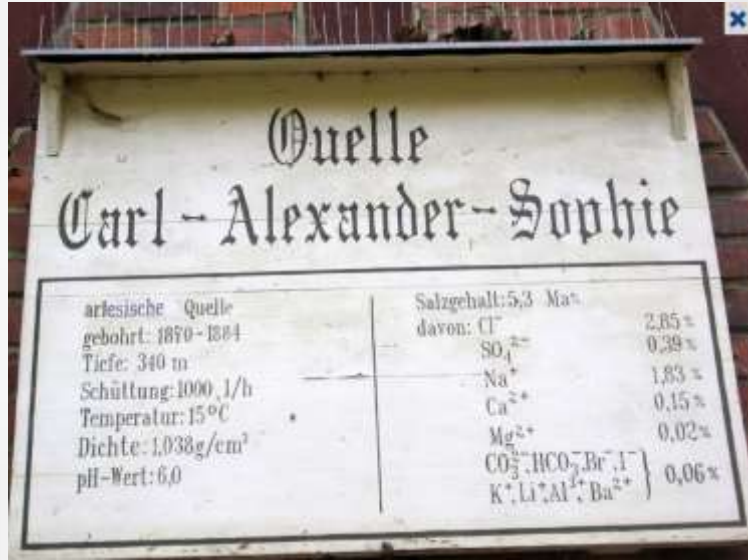 Quelle
Carl-Alexander-Sophie
artesische Quelle
gebohrt: 1870-1884
Tiefe: 340 m
Schüttung: 1000 l/h
Temperatur: 15°C
Dichte: 1,038g/cm³
pH-Wert: 6,0
Salzgehalt: 5,3 Ma%
davon: Cl⁻ 2,85%
SO₄²⁻ 0,39%
Na⁺ 1,83%
Ca²⁺ 0,15%
Mg²⁺ 0,02%
CO₃²⁻, HCO₃⁻, Br⁻, I⁻
K⁺, Li⁺, Al³⁺, Ba²⁺ } 0,06%